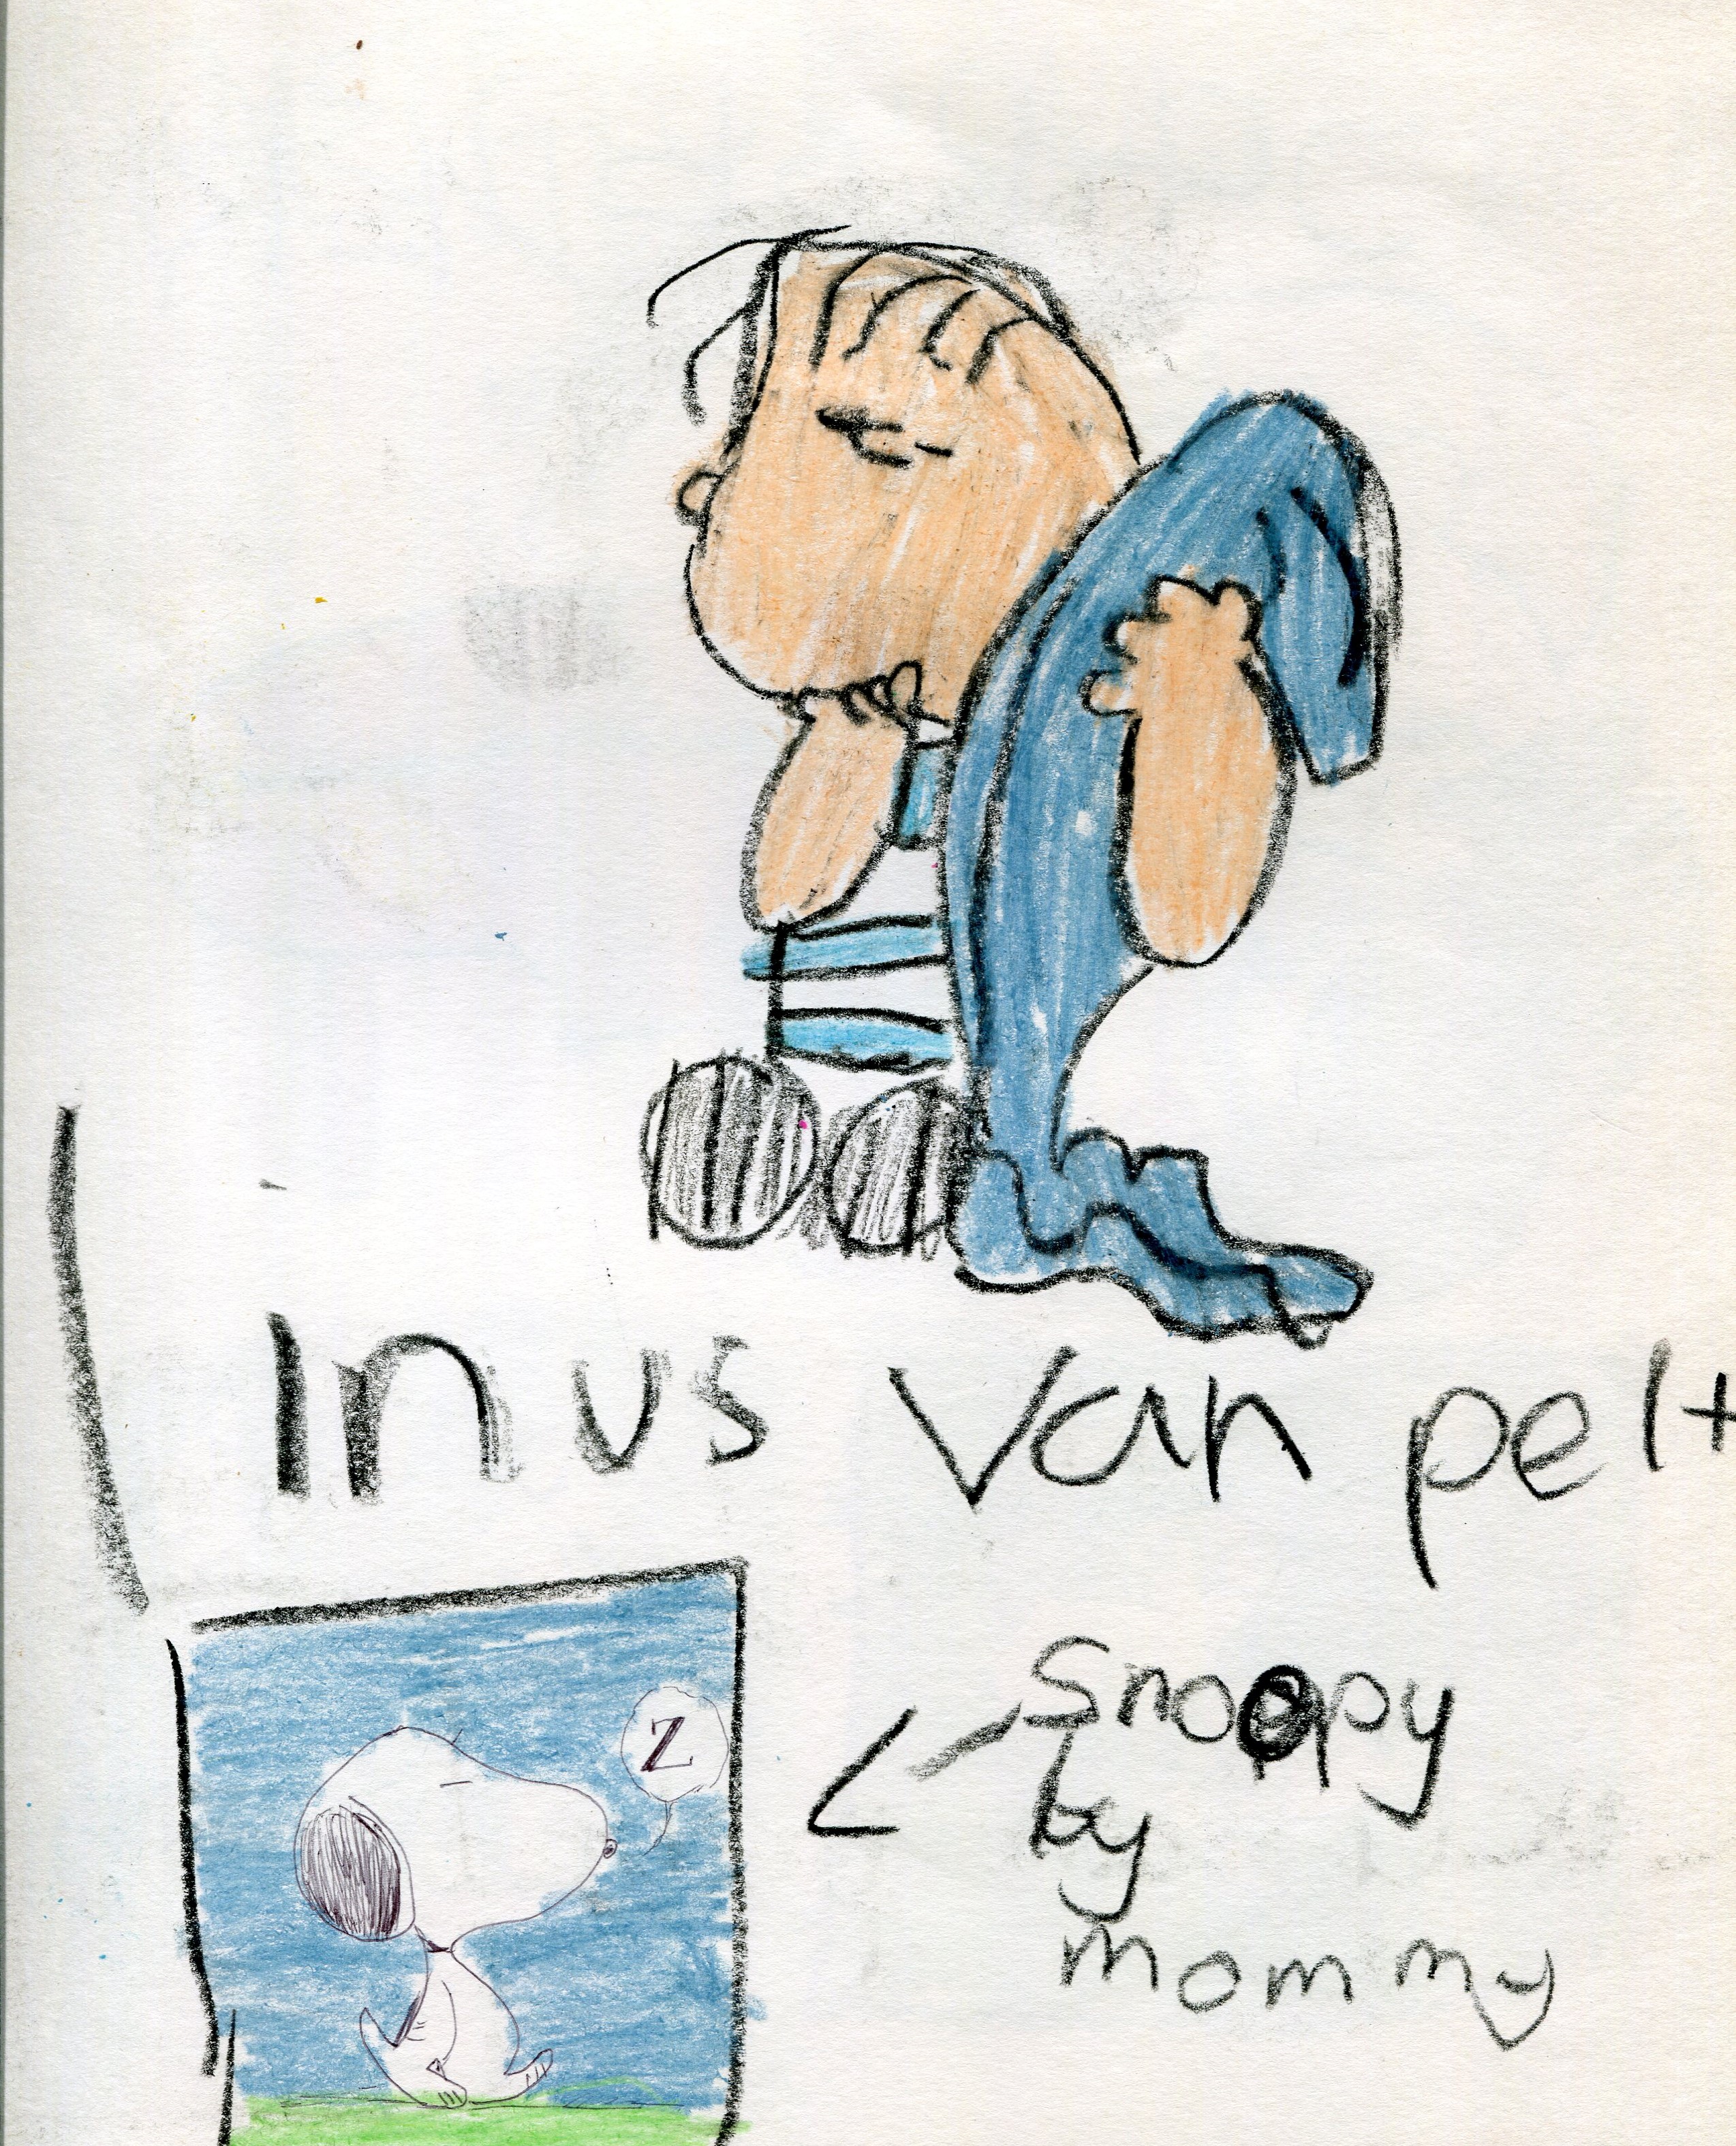 Linus Van pelt
Z
Snoopy
by
mommy